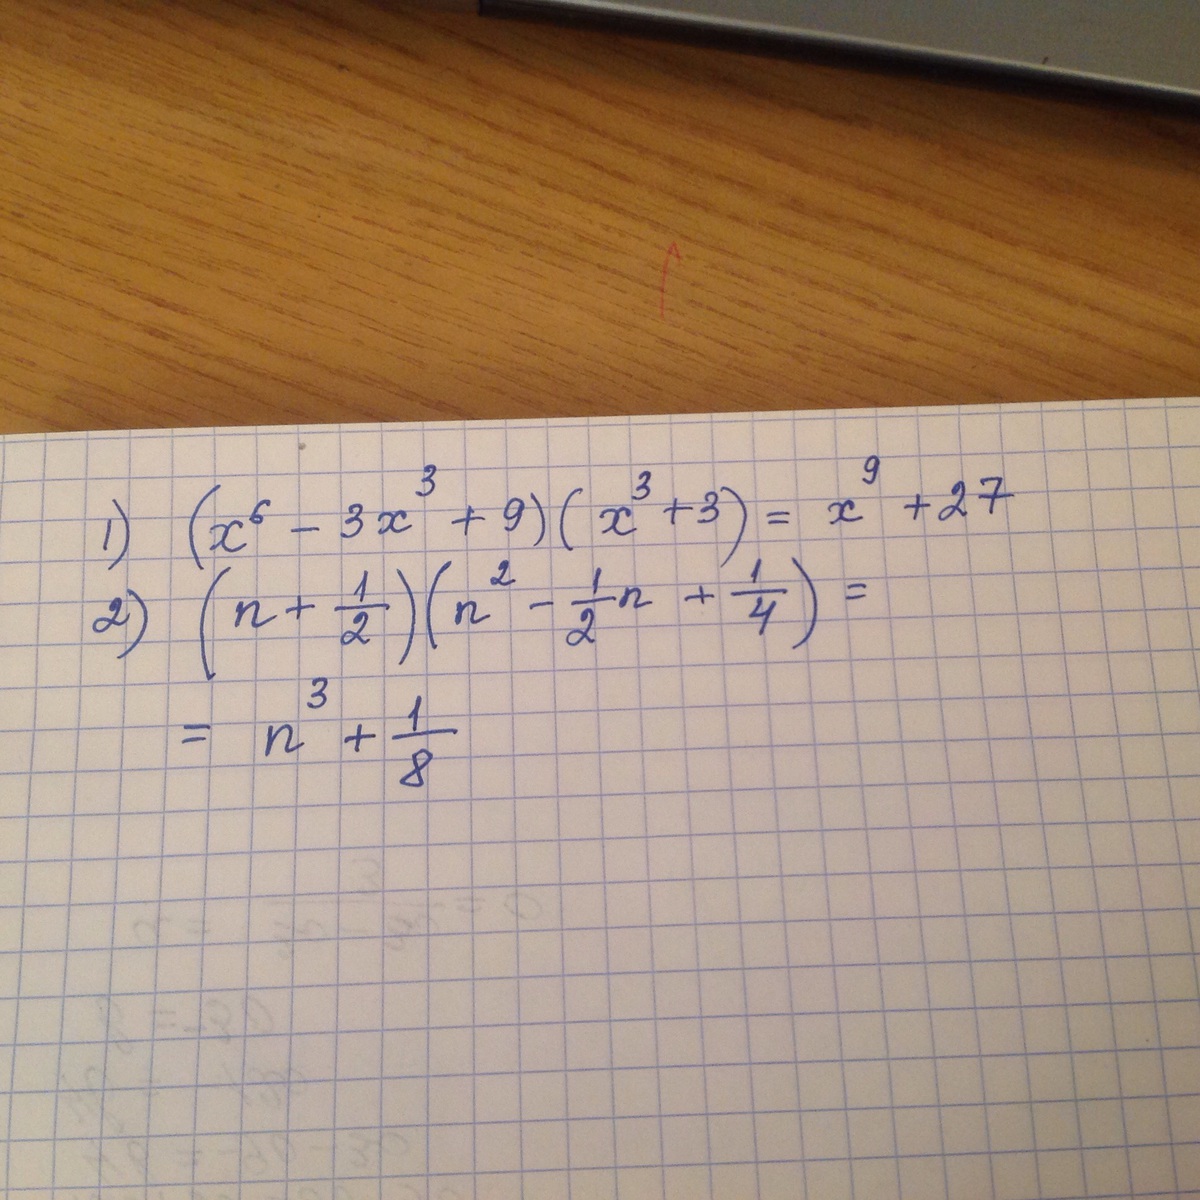 1) (x⁶ - 3x³ + 9)(x³ + 3) = x⁹ + 27
2) (n + 1/2)(n² - 1/2n + 1/4) =
= n³ + 1/8